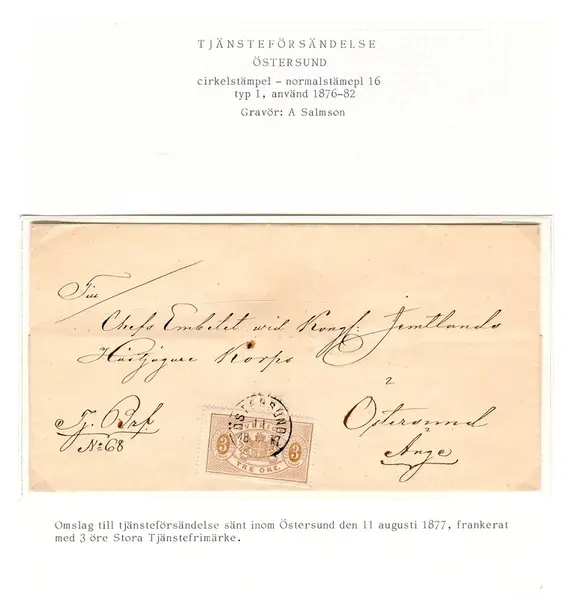 TJÄNSTEFÖRSÄNDELSE
ÖSTERSUND
cirkelstämpel - normalstämepl 16
typ 1, använd 1876-82
Gravör: A Salmson
Till
Chefs Embetet wid Kongl: Jemtlands
Hästjägare Korps
2
Tj. Brf.
No 68
Östersund
Ange
ÖSTERSUND
3 3
TRE ÖRE
Omslag till tjänsteförsändelse sänt inom Östersund den 11 augusti 1877, frankerat
med 3 öre Stora Tjänstefrimärke.